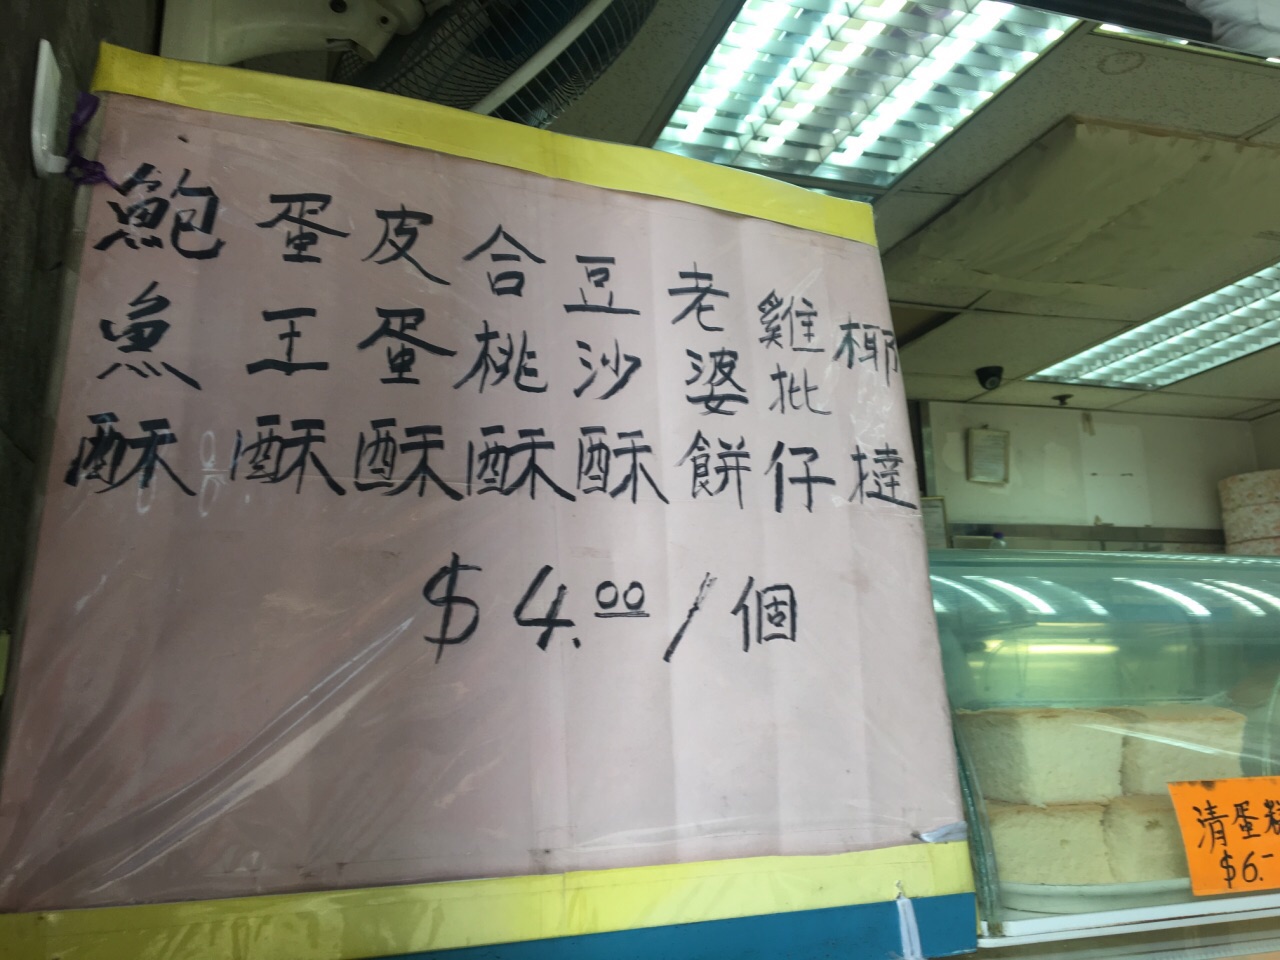 鮑魚酥
蛋王酥
皮蛋酥
合桃酥
豆沙酥
老婆餅
雞批仔
椰撻
$4.00/個
清蛋糕
$6.-